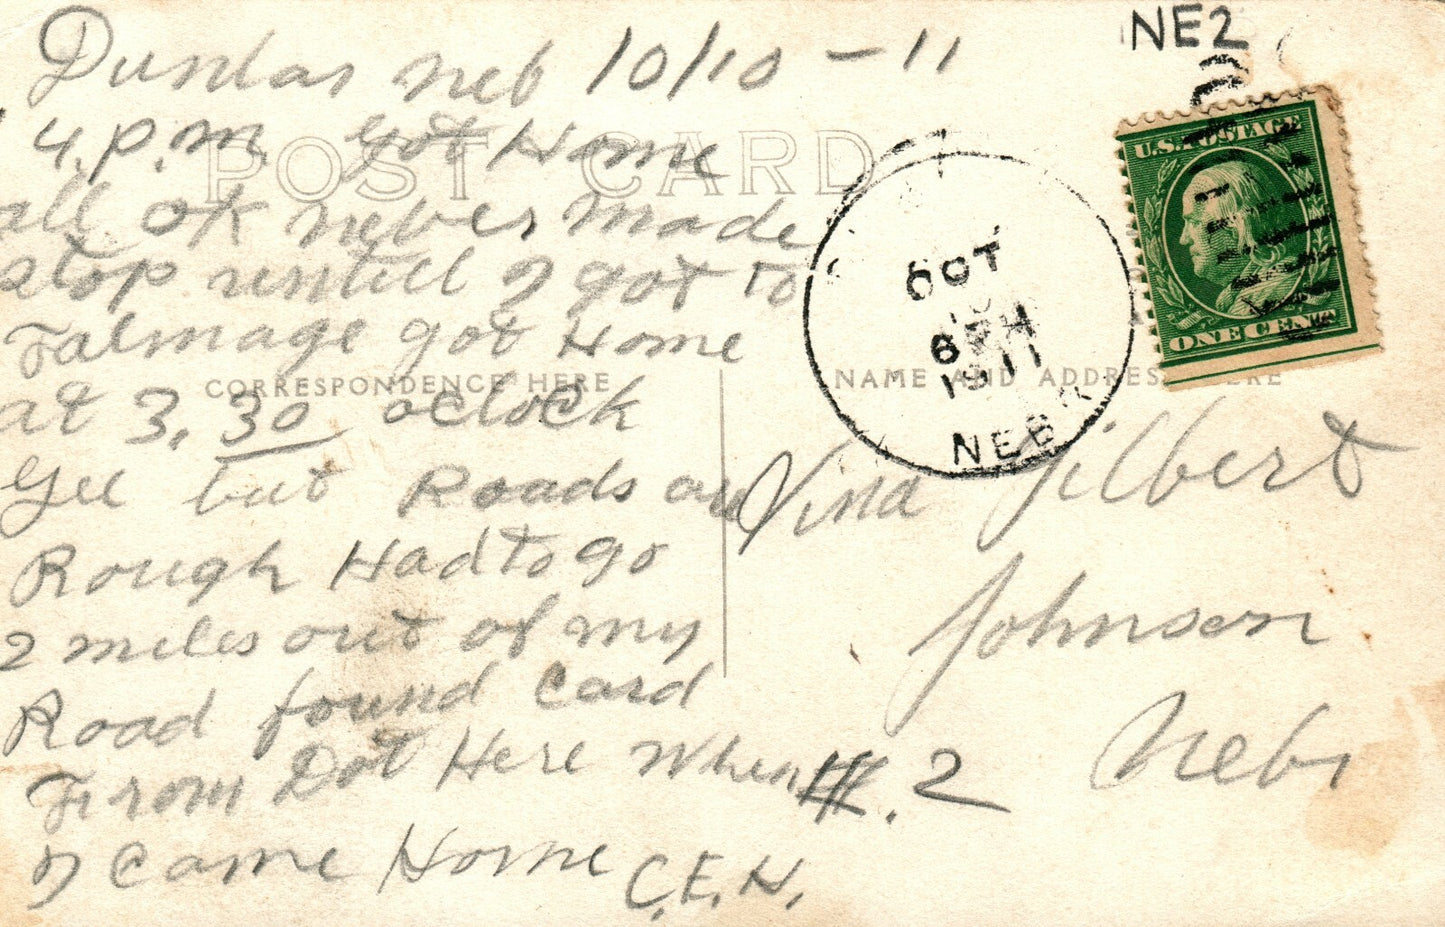 NE2
Dunbar Neb 10/10-11
4.P.M. got Home
all ok never made
stop untill I got to
Talmage got Home
at 3.30 oclock
but Roads are
Rough Had to go
2 miles out of my
Road found Card
From Dot Here When
I Came Home C.E.H.
POST CARD
CORRESPONDENCE HERE
NAME AND ADDRESS HERE
U.S. POSTAGE
ONE CENT
OCT
10
6 PM
1911
NEBR
Vina Gilbert
Johnson
Nebr
#.2